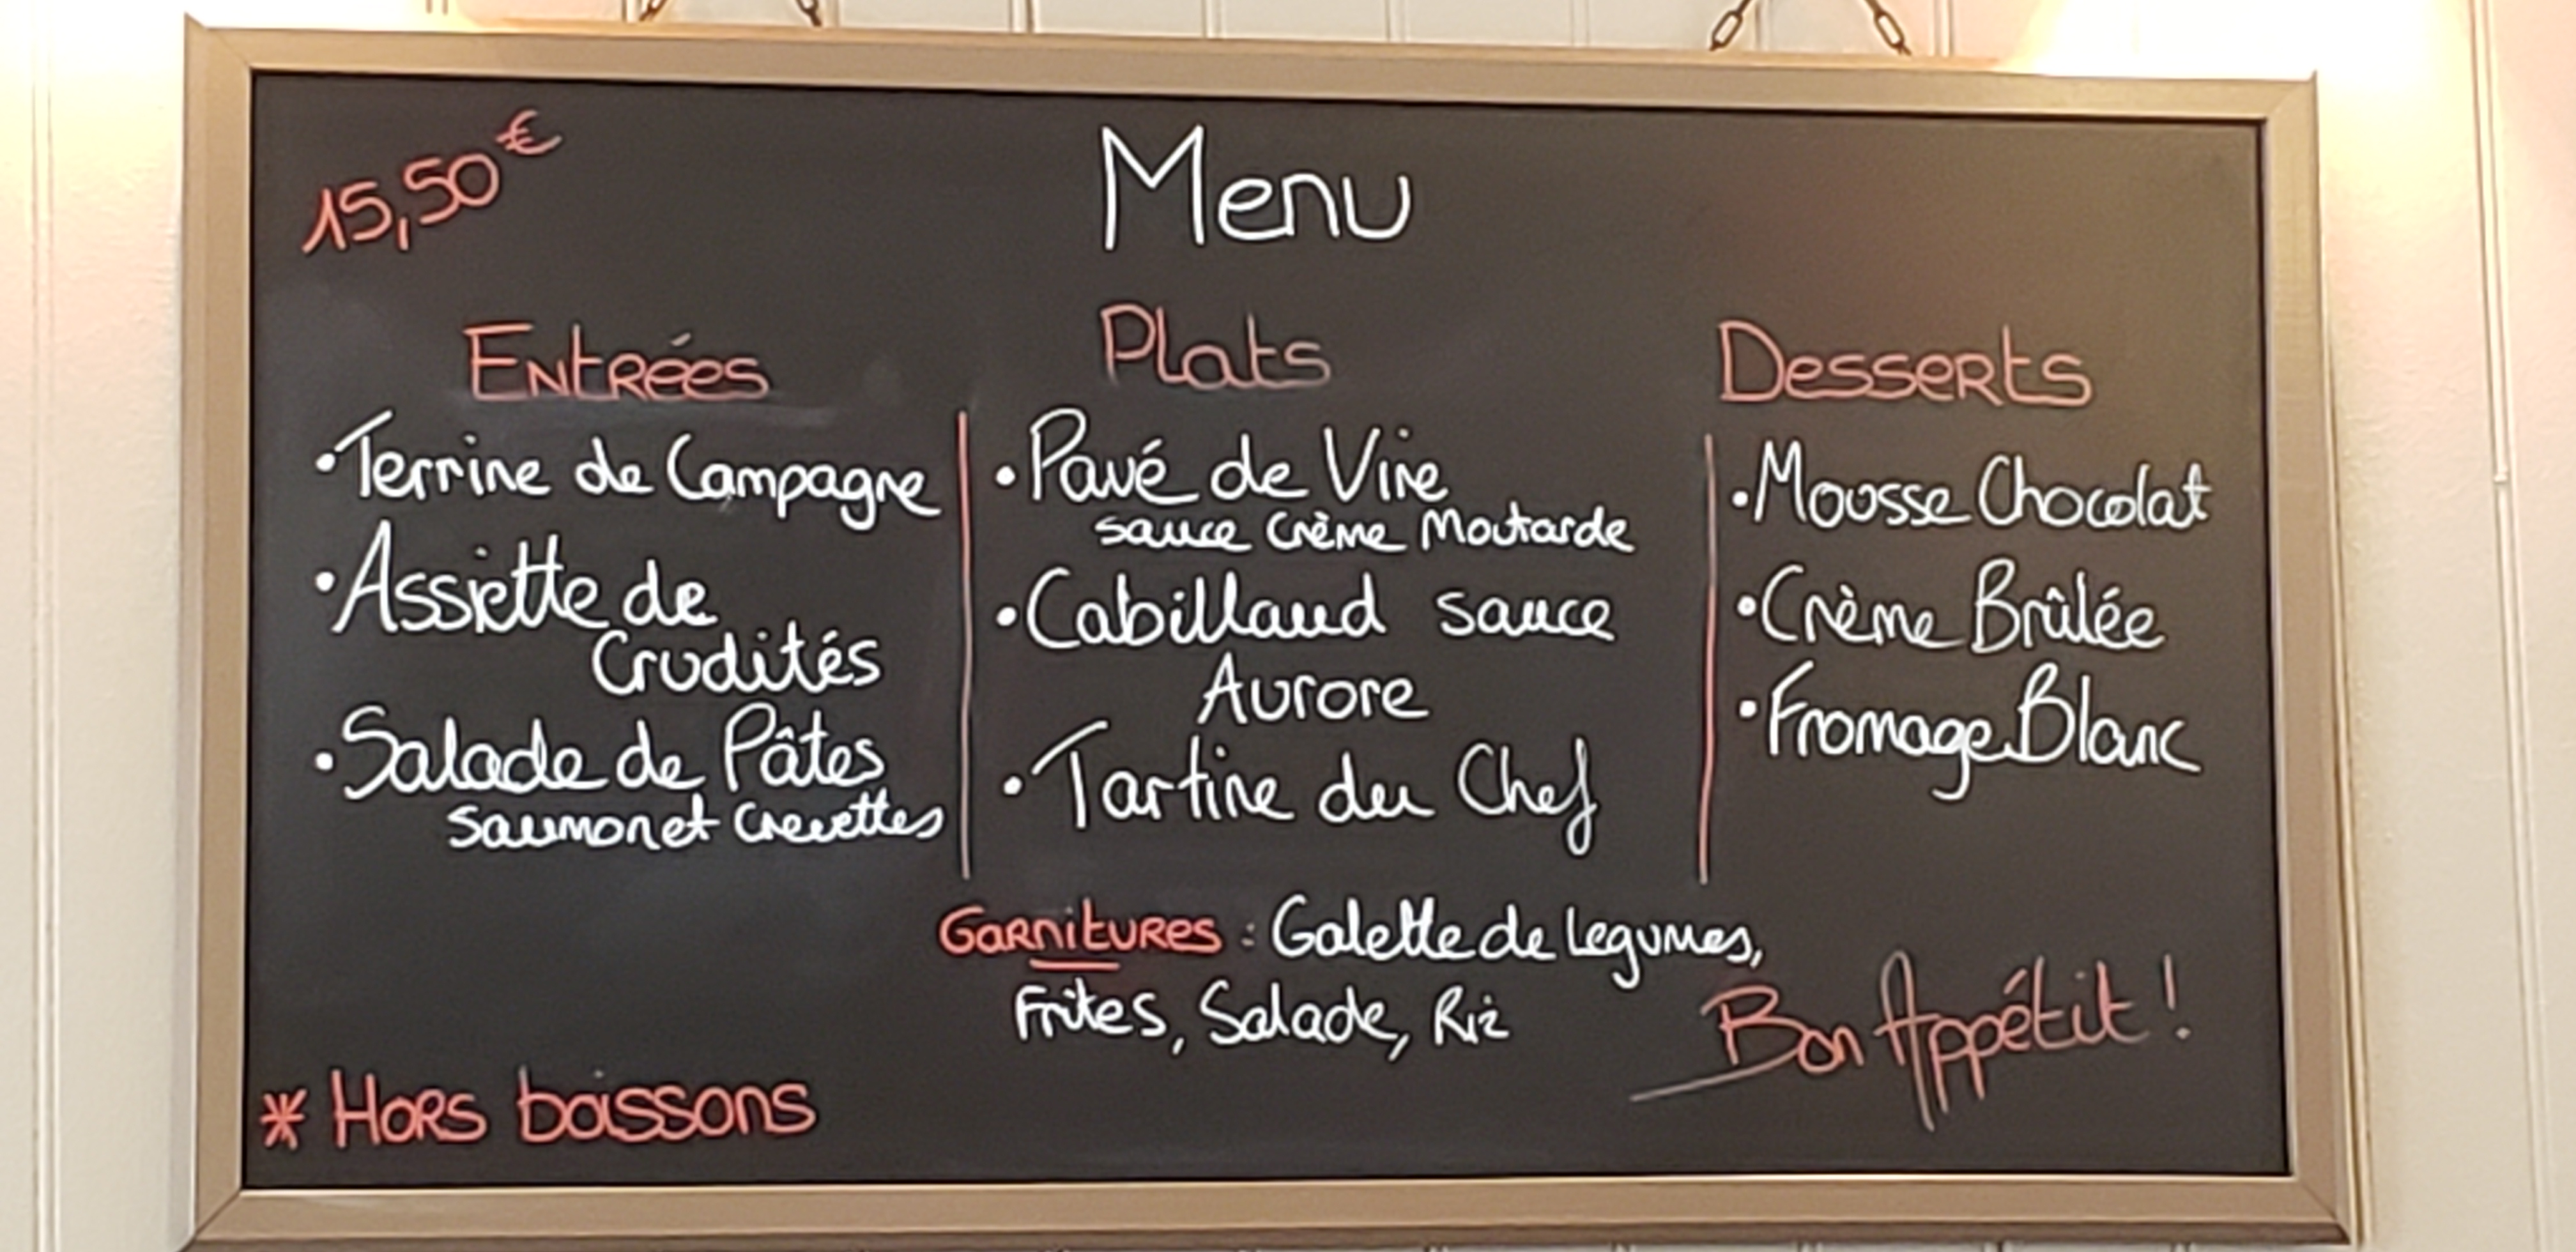 15,50€
Menu
Entrées
• Terrine de Campagne
• Assiette de
Crudités
• Salade de Pâtes
saumon et Crevettes
Plats
• Pavé de Vire
sauce Crème Moutarde
• Cabillaud sauce
Aurore
• Tartine du Chef
Desserts
• Mousse Chocolat
• Crème Brûlée
• Fromage Blanc
Garnitures : Galette de Legumes,
Frites, Salade, Riz
* Hors boissons
Bon Appétit !